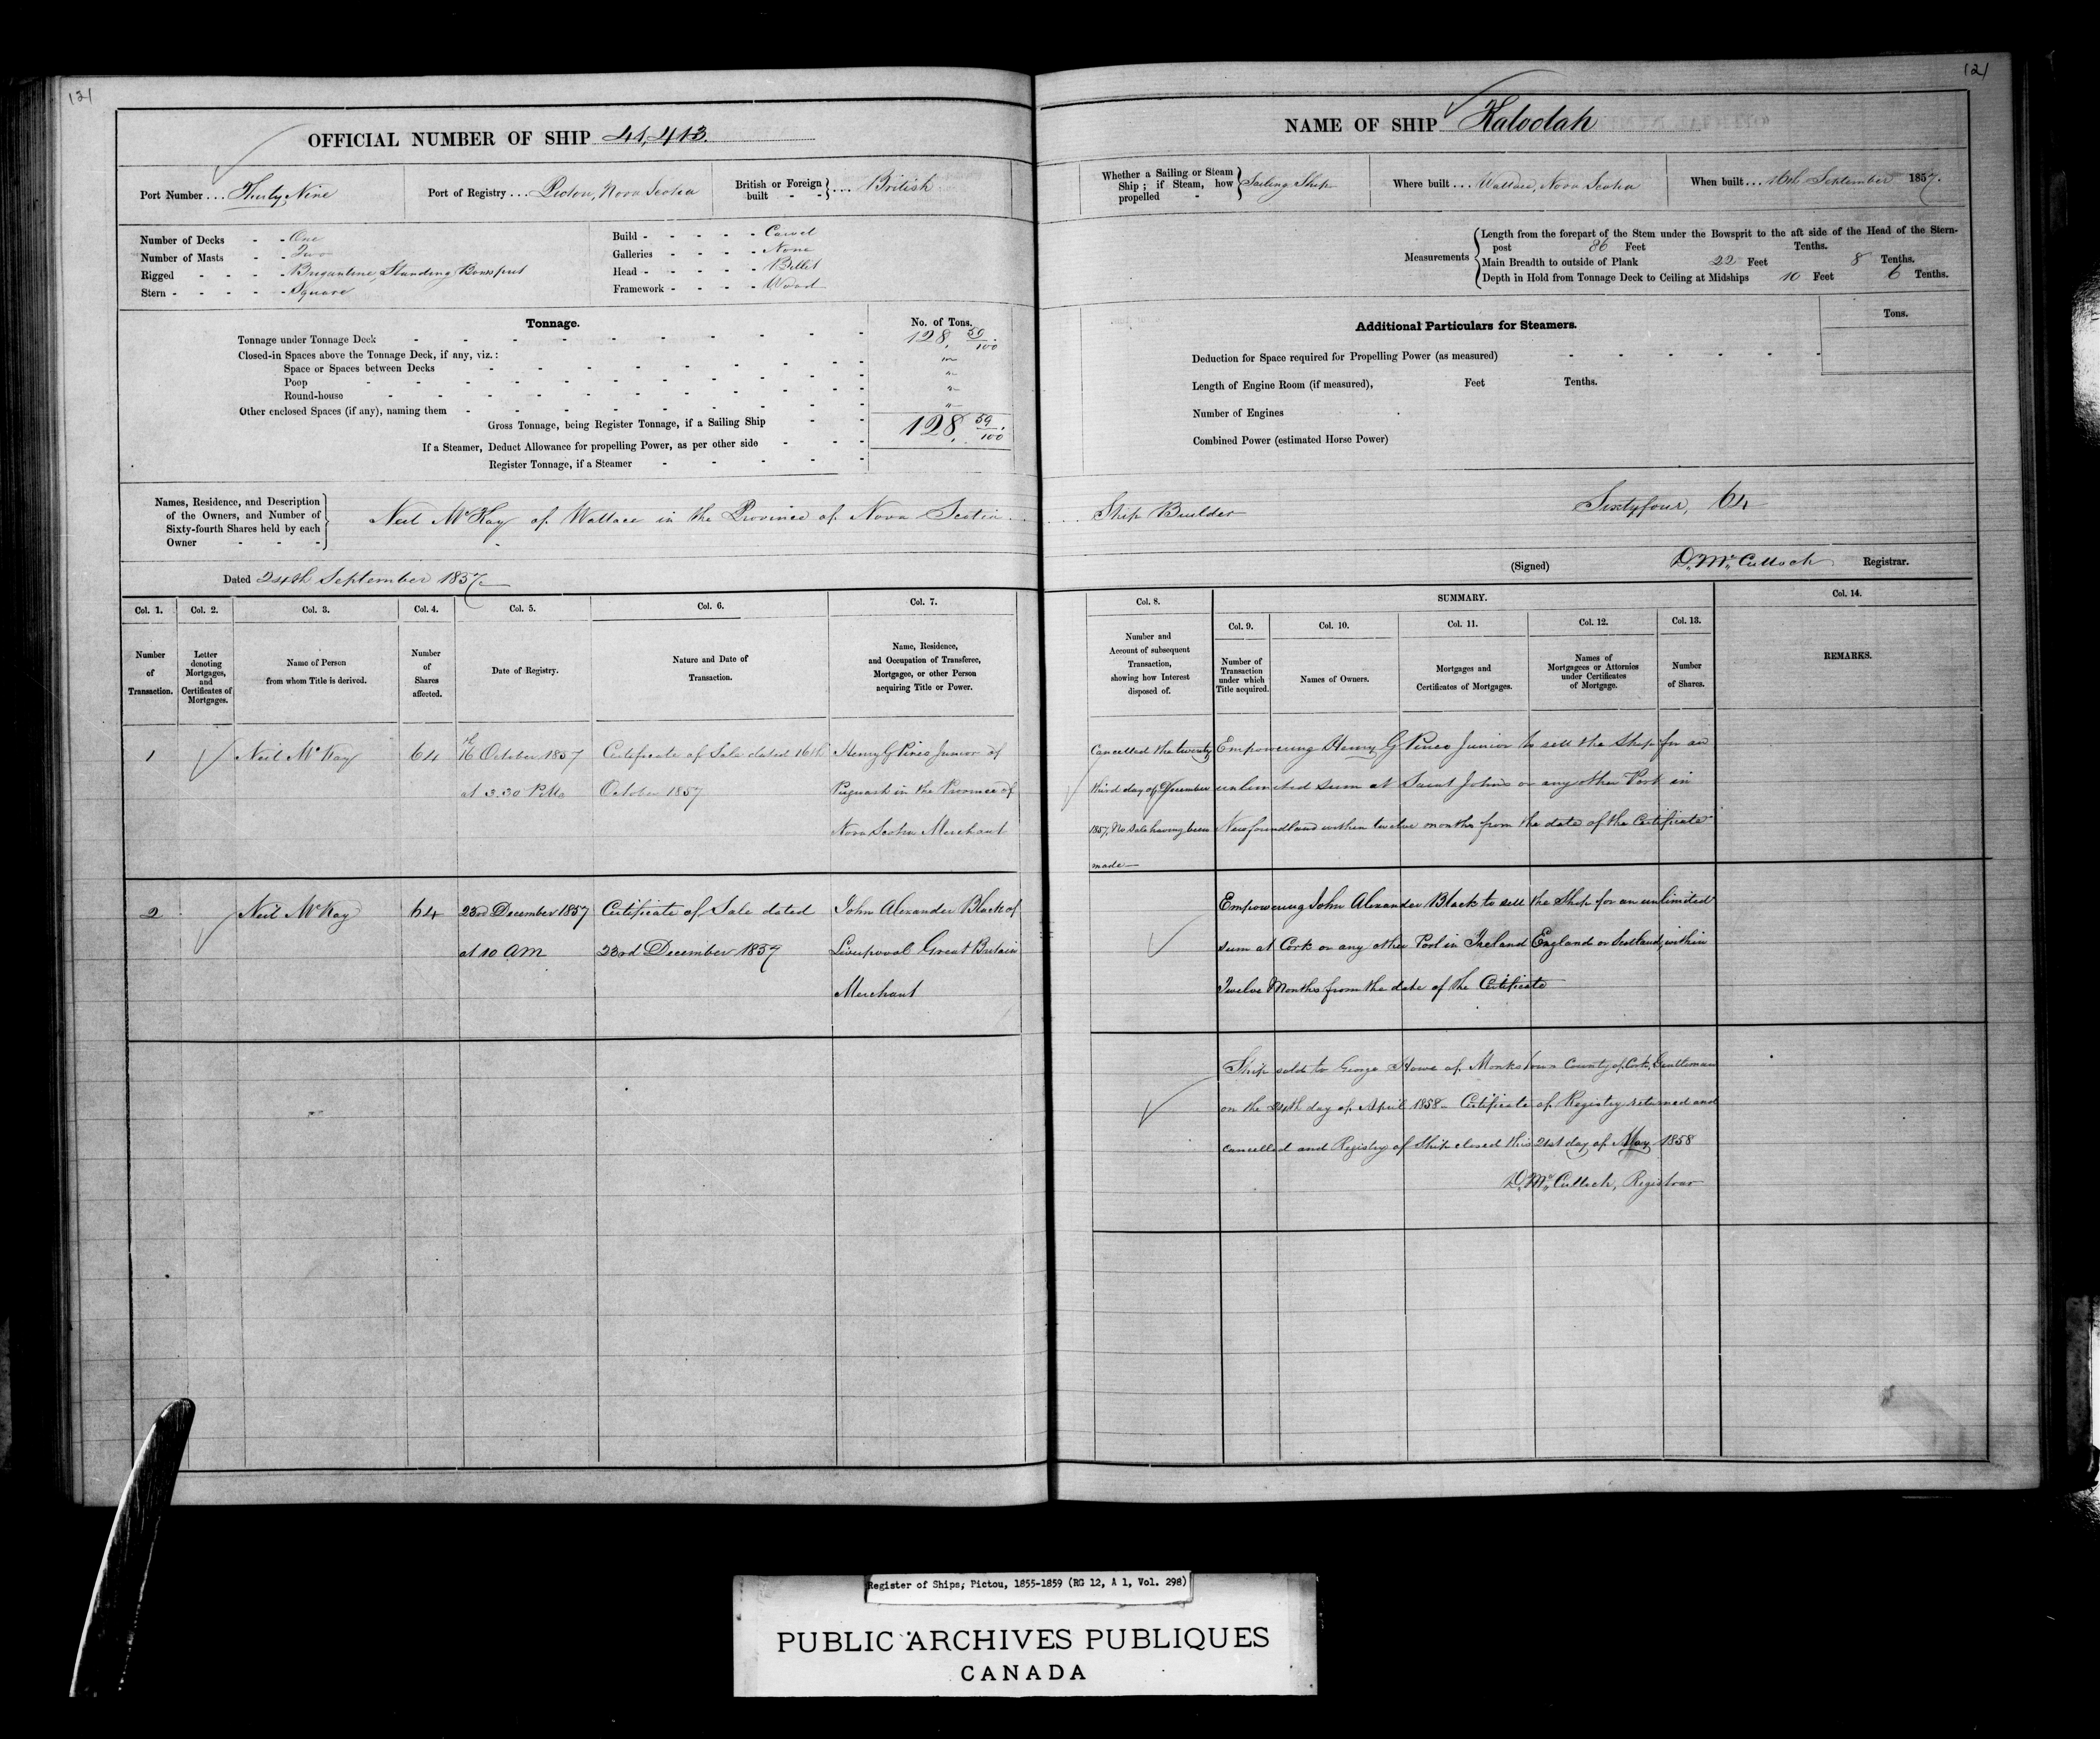 121
OFFICIAL NUMBER OF SHIP 41,413.
Port Number ... Thirty Nine
Port of Registry ... Pictou, Nova Scotia
British or Foreign built - - } ... British
Number of Decks - - One
Number of Masts - - Two
Rigged - - - - Brigantine, Standing Bowsprit
Stern - - - - - Square
Build - - - - - Carvel
Galleries - - - - None
Head - - - - - Billet
Framework - - - - Wood
Tonnage.
No. of Tons.
Tonnage under Tonnage Deck 128, 59/100
Closed-in Spaces above the Tonnage Deck, if any, viz.:
Space or Spaces between Decks "
Poop "
Round-house "
Other enclosed Spaces (if any), naming them "
Gross Tonnage, being Register Tonnage, if a Sailing Ship 128, 59/100
If a Steamer, Deduct Allowance for propelling Power, as per other side
Register Tonnage, if a Steamer
Names, Residence, and Description of the Owners, and Number of Sixty-fourth Shares held by each Owner - - -
Neil McKay of Wallace in the Province of Nova Scotia
Dated 24th September 1857
Col. 1.
Number of Transaction.
Col. 2.
Letter denoting Mortgages, and Certificates of Mortgages.
Col. 3.
Name of Person from whom Title is derived.
Col. 4.
Number of Shares affected.
Col. 5.
Date of Registry.
Col. 6.
Nature and Date of Transaction.
Col. 7.
Name, Residence, and Occupation of Transferee, Mortgagee, or other Person acquiring Title or Power.
1
Neil McKay
64
16th October 1857
at 3.30 P.M.
Certificate of Sale dated 16th
October 1857
Henry G Pineo Junior of
Pugwash in the Province of
Nova Scotia Merchant
2
Neil McKay
64
23rd December 1857
at 10 AM
Certificate of Sale dated
23rd December 1857
John Alexander Black of
Liverpool Great Britain
Merchant
121
NAME OF SHIP Kaloolah
Whether a Sailing or Steam Ship; if Steam, how propelled - } Sailing Ship
Where built ... Wallace, Nova Scotia
When built ... 16th September 1857.
Measurements
Length from the forepart of the Stem under the Bowsprit to the aft side of the Head of the Stern-
post 86 Feet Tenths.
Main Breadth to outside of Plank 22 Feet 8 Tenths.
Depth in Hold from Tonnage Deck to Ceiling at Midships 10 Feet 6 Tenths.
Additional Particulars for Steamers.
Tons.
Deduction for Space required for Propelling Power (as measured)
Length of Engine Room (if measured), Feet Tenths.
Number of Engines
Combined Power (estimated Horse Power)
Ship Builder Sixtyfour, 64
(Signed) D. McCulloch Registrar.
Col. 8.
Number and Account of subsequent Transaction, showing how Interest disposed of.
SUMMARY.
Col. 9.
Number of Transaction under which Title acquired.
Col. 10.
Names of Owners.
Col. 11.
Mortgages and Certificates of Mortgages.
Col. 12.
Names of Mortgagees or Attornies under Certificates of Mortgage.
Col. 13.
Number of Shares.
Col. 14.
REMARKS.
Cancelled the twenty
third day of December
1857, No sale having been
made
Empowering Henry G Pineo Junior to sell the Ship for an
unlimited sum at Saint Johns or any other Port in
Newfoundland within twelve months from the date of the Certificate
Empowering John Alexander Black to sell the Ship for an unlimited
sum at Cork or any other Port in Ireland England or Scotland within
Twelve Months from the date of the Certificate
Ship sold to George Howe of Monkstown County of Cork, Gentleman
on the 24th day of April 1858 - Certificate of Registry returned and
cancelled and Registry of Ship closed this 21st day of May 1858
D. McCulloch, Registrar
Register of Ships, Pictou, 1855-1859 (RG 12, A 1, Vol. 298)
PUBLIC ARCHIVES PUBLIQUES
CANADA